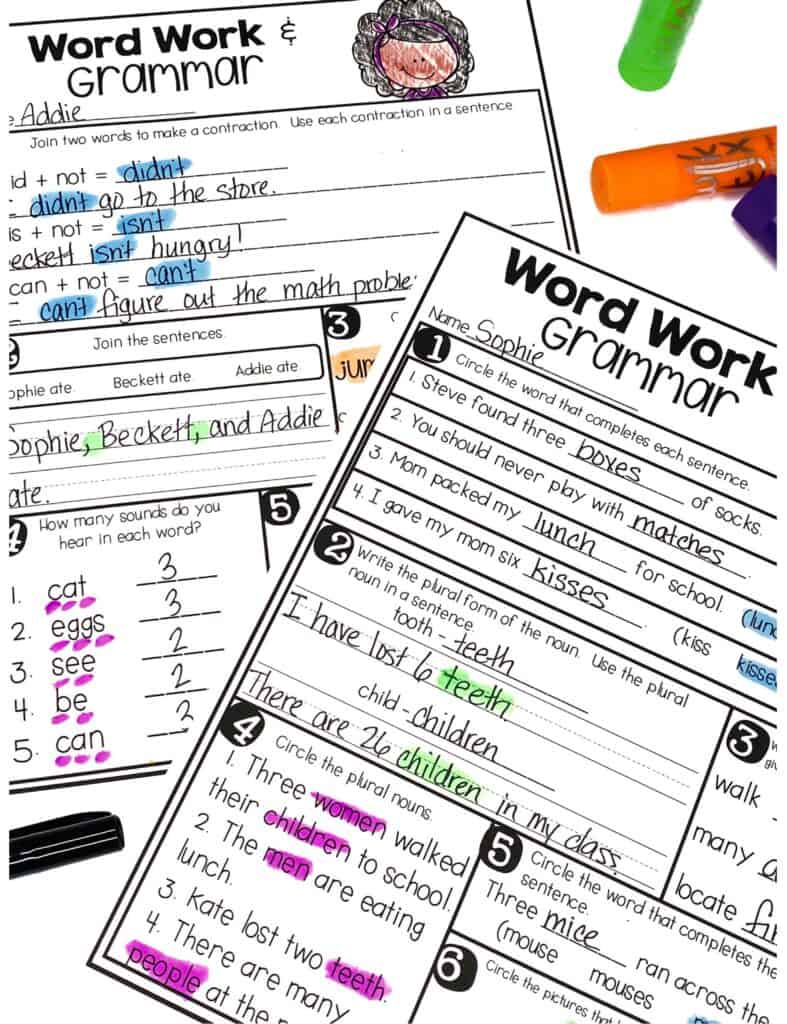 Word Work &
Grammar
Addie
Join two words to make a contraction. Use each contraction in a sentence
id + not = didn't
didn't go to the store.
is + not = isn't
eckett isn't hungry!
can + not = can't
can't figure out the math proble
Join the sentences.
ophie ate. Beckett ate. Addie ate.
Sophie, Beckett, and Addie
ate.
3
jum
4
How many sounds do you
hear in each word?
1. cat 3
2. eggs 3
3. see 2
4. be 2
5. can 3
5
Word Work
Grammar
Name Sophie
1 Circle the word that completes each sentence.
1. Steve found three boxes of socks.
2. You should never play with matches.
3. Mom packed my lunch for school. (lunc
4. I gave my mom six kisses. (kiss kisses
2 Write the plural form of the noun. Use the plural
noun in a sentence.
tooth - teeth
I have lost 6 teeth
child - children
There are 26 children in my class.
3
walk
many
locate
4 Circle the plural nouns.
1. Three women walked
their children to school.
2. The men are eating
lunch.
3. Kate lost two teeth.
4. There are many
people at the
5 Circle the word that completes the
sentence.
Three mice ran across the
(mouse mouses
6 Circle the pictures that